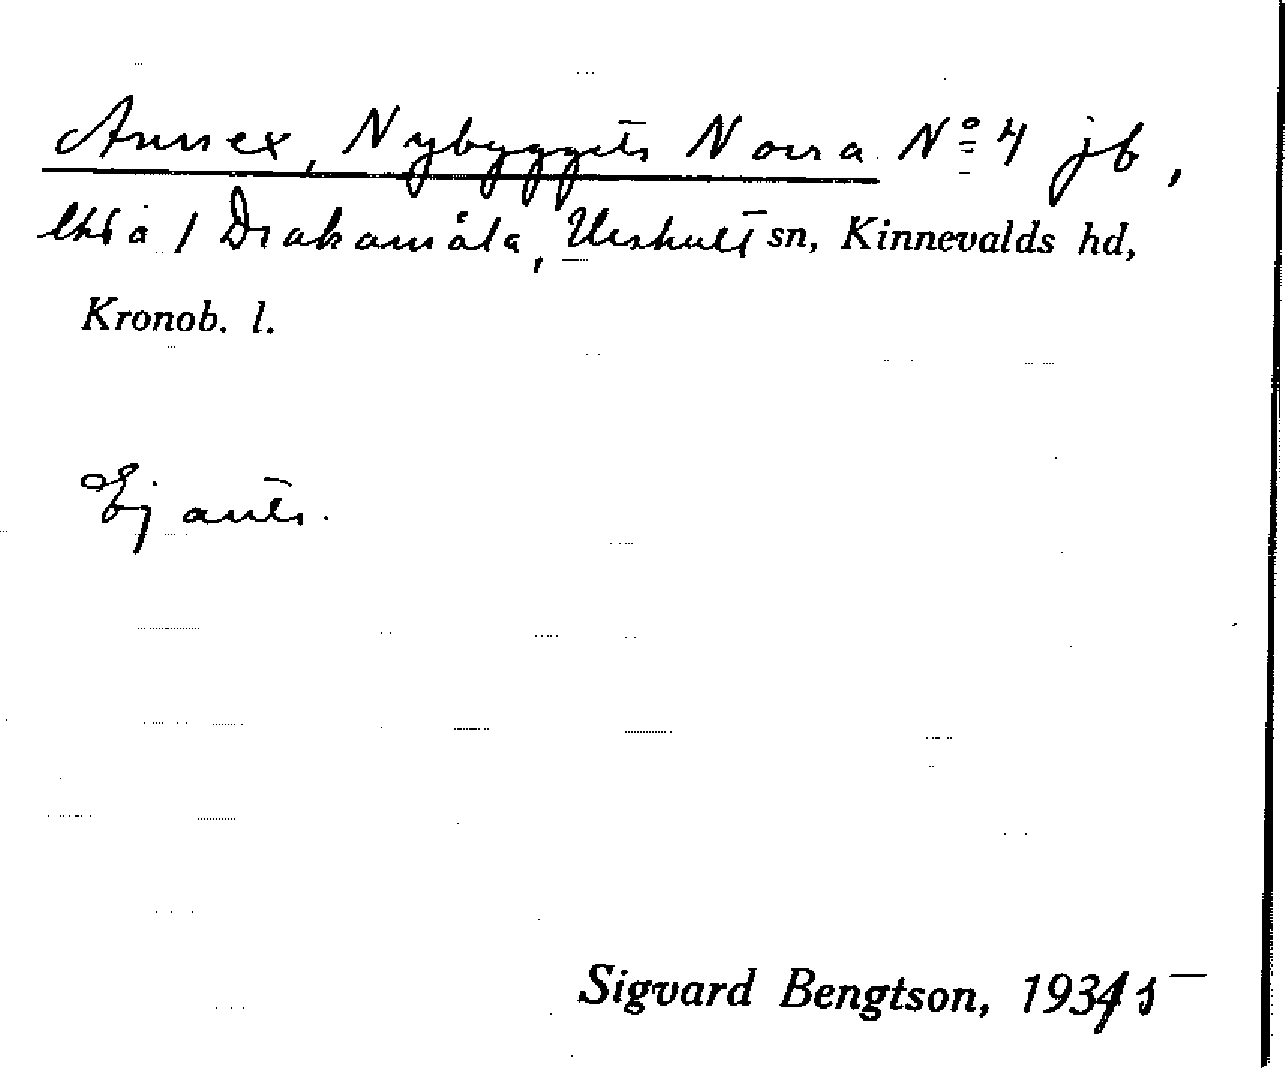 Annex, Nybyggets Norra Nº 4 jb,
på / Drakamåla, Urshult sn, Kinnevalds hd,
Kronob. l.
Ej ants.
Sigvard Bengtson, 1935